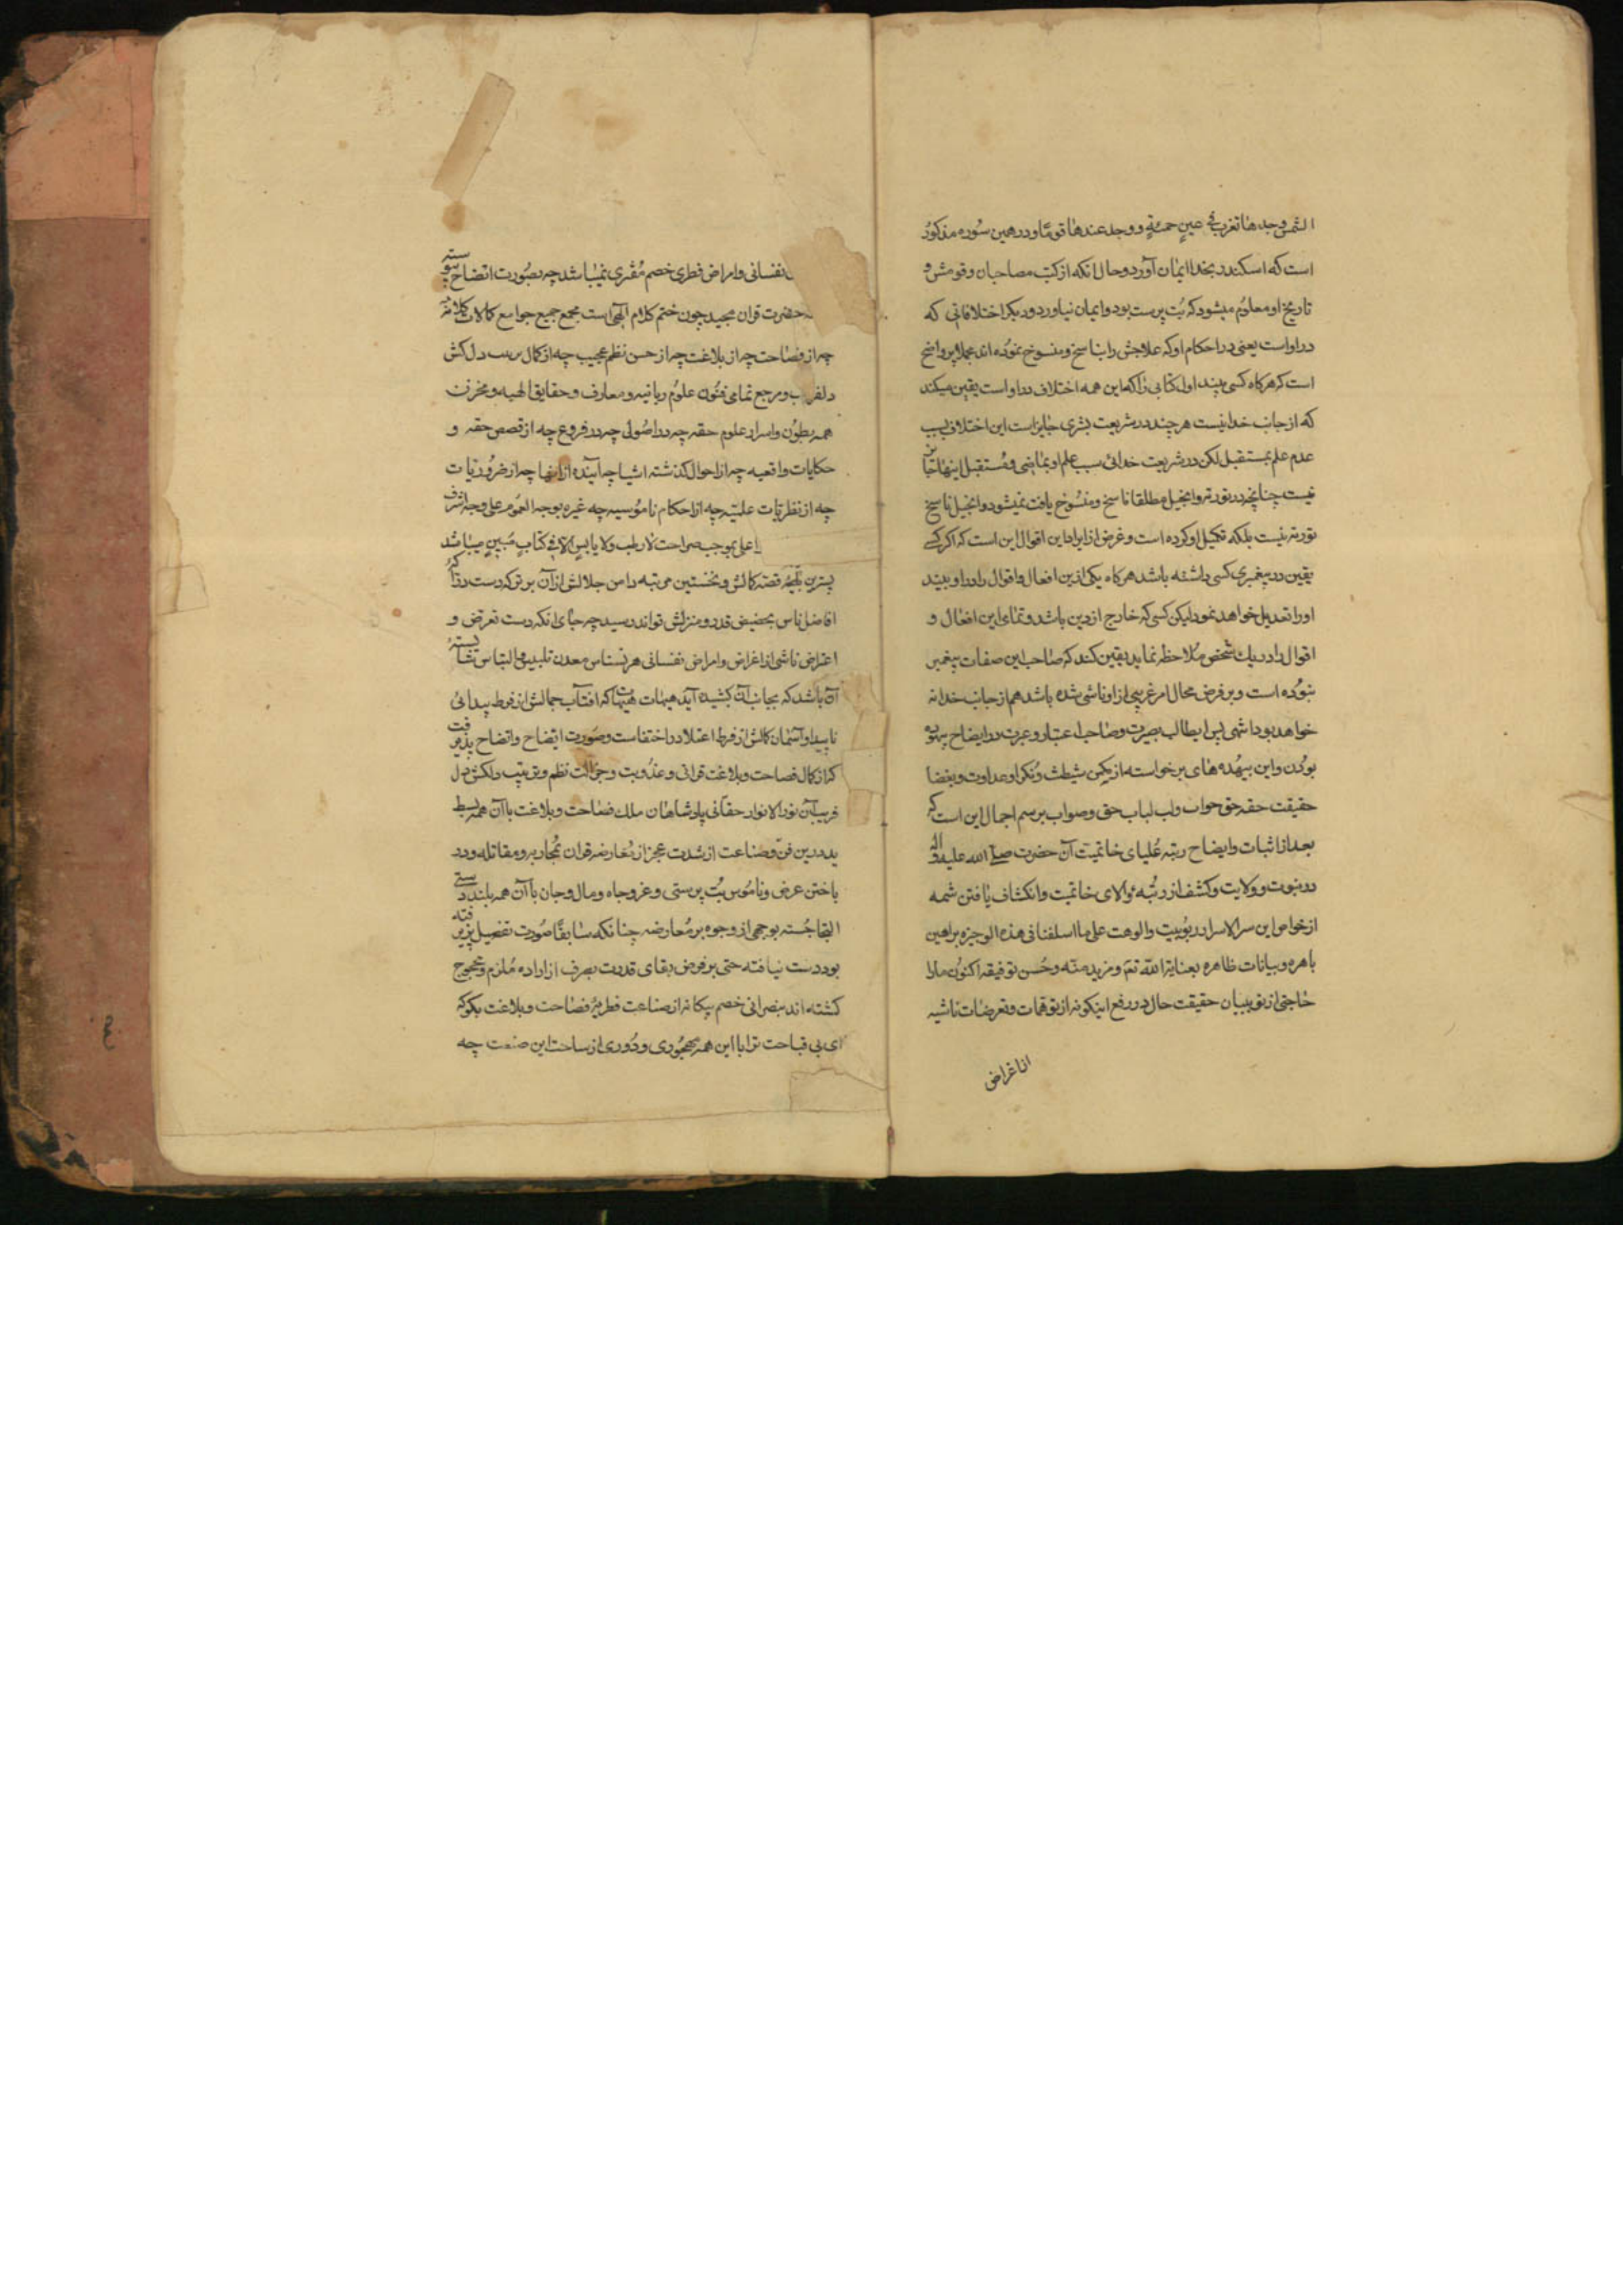 الشمس وجدها تغرب فی عین حمئة و وجد عندها قوما و در همین سوره مذکور
است که اسکندر بخدا ایمان آورد و حال انکه از کتب مصاحبان و قومش و
تاریخ او معلوم میشود که بت پرست بود و ایمان نیاورد و دیگر اختلافاتی که
در او است یعنی در احکام او که علاجش را بناسخ و منسوخ نموده اند مجملا پر واضح
است که هرگاه کسی بیند اول کتابی را که این همه اختلاف در او است یقین میکند
که از جانب خدا نیست هر چند در شریعت بشری جایز است این اختلاف بسبب
عدم علم بمستقبل لکن در شریعت خدائی بسبب علم او بماضی و مستقبل اینها جایز
نیست چنانچه در توریة و انجیل مطلقا ناسخ و منسوخ یافت نمیشود و انجیل ناسخ
توریة نیست بلکه تکمیل او کرده است و غرض از ایراد این اقوال این است که اگر کسے
یقین در پیغمبری کسی داشته باشد هر گاه یکی ازین افعال و اقوال را در او بیند
او را تعدیل خواهد نمود لیکن کسی که خارج از دین باشد و تمای این افعال و
اقوال را در یک شخص ملاحظه نماید یقین کند که صاحب این صفات پیغمبر
نبوده است و بر فرض محال امر غریبی از او ناشی شده باشد هم از جانب خدا نه
خواهد بود انتهی پس ای طالب بصیرت و صاحب اعتبار و عبرت در ایضاح بیهوده
بودن و این بیهده های برخواسته از مکمن شیطنت و نکرا و عداوت و بغضا
حقیقت حقه حق جواب و لب لباب حق و صواب برسم اجمال این است که
بعد از اثبات و ایضاح رتبه علیای خاتمیت آن حضرت صلے الله علیه و اله
در نبوت و ولایت و کشف از رتبه والای خاتمیت و انکشاف یافتن شمه
از خواص این سر الاسرار ربوبیت و الوهت علی ما اسلفنا فی هذه الوجیزه براهین
باهره و بیانات ظاهره بعنایة الله تع و مزید منه و حسن توفیقه اکنون ما را
حاجتی از تو بیبیان حقیقت حال در رفع اینکونه از توهمات و تعرضات ناشیه
از اغراض
نفسانی و امراض فطری خصم مفتری نمیباشد چه بصورت اتضاح پیوسته
حضرت قران مجید چون ختم کلام الهی است مجمع جمیع جوامع کمالات کلامیه
چه از فصاحت چه از بلاغت چه از حسن نظم عجیب چه از کمال دل کش
دلفریب و مرجع تمامی فنون علوم ربانیه و معارف و حقایق الهیه و مخزن
همه بطون و اسرار علوم حقه چه در اصولی چه در فروع چه از قصص حقه و
حکایات واقعیه چه از احوال گذشته اشیا چه آینده از انها چه از ضروریات
چه از نظریات علمیه چه از احکام ناموسیه چه غیره بوجه العموم علی وجه اشرف
اعلی بموجب صراحت لا رطب و لا یابس الا فی کتاب مبین میباشد
قصه کمالش و نخستین مرتبه دامن جلالش از آن برتر که دست درک
افاضل ناس بحضیض قدر و منزلش تواند رسید چه جای انکه دست تعرض و
اعتراض ناشی از اغراض و امراض نفسانی هر نسناس معدن تلبیس و التباس شایسته
آن باشد که بجانب آن کشیده آید هیهات هیهات که افتاب جمالش از فرط پیدائی
ناپیدا و آسمان کمالش از فرط اعتلا در اختفاست و صورت ایضاح و اتضاح پذیرفت
که از کمال فصاحت و بلاغت قرانی و عذوبت و جزالت نظم و ترتیب دلکش دل
فریب آن نور الانوار حقانی پادشاهان ملک فصاحت و بلاغت با آن همه بسط
ید در این فن و صناعت از شدت عجز از معارضه قران بمحاربه و مقاتله و در
باختن عرض و ناموس بت پرستی و عز و جاه و مال و جان با آن همه بلند دستی
التجا جسته بوجهی از وجوه بر معارضه چنانکه سابقا صورت تفصیل پذیرفته
بود دست نیافته حتی بر فرض بقای قدرت بصرف از اراده ملزم و محجوج
گشته اند بنصرانی خصم بیگانه از صناعت فطریه فصاحت و بلاغت بگو که
ای بی قباحت ترا با این همه مهجوری و دوری از ساحت این صنعت چه